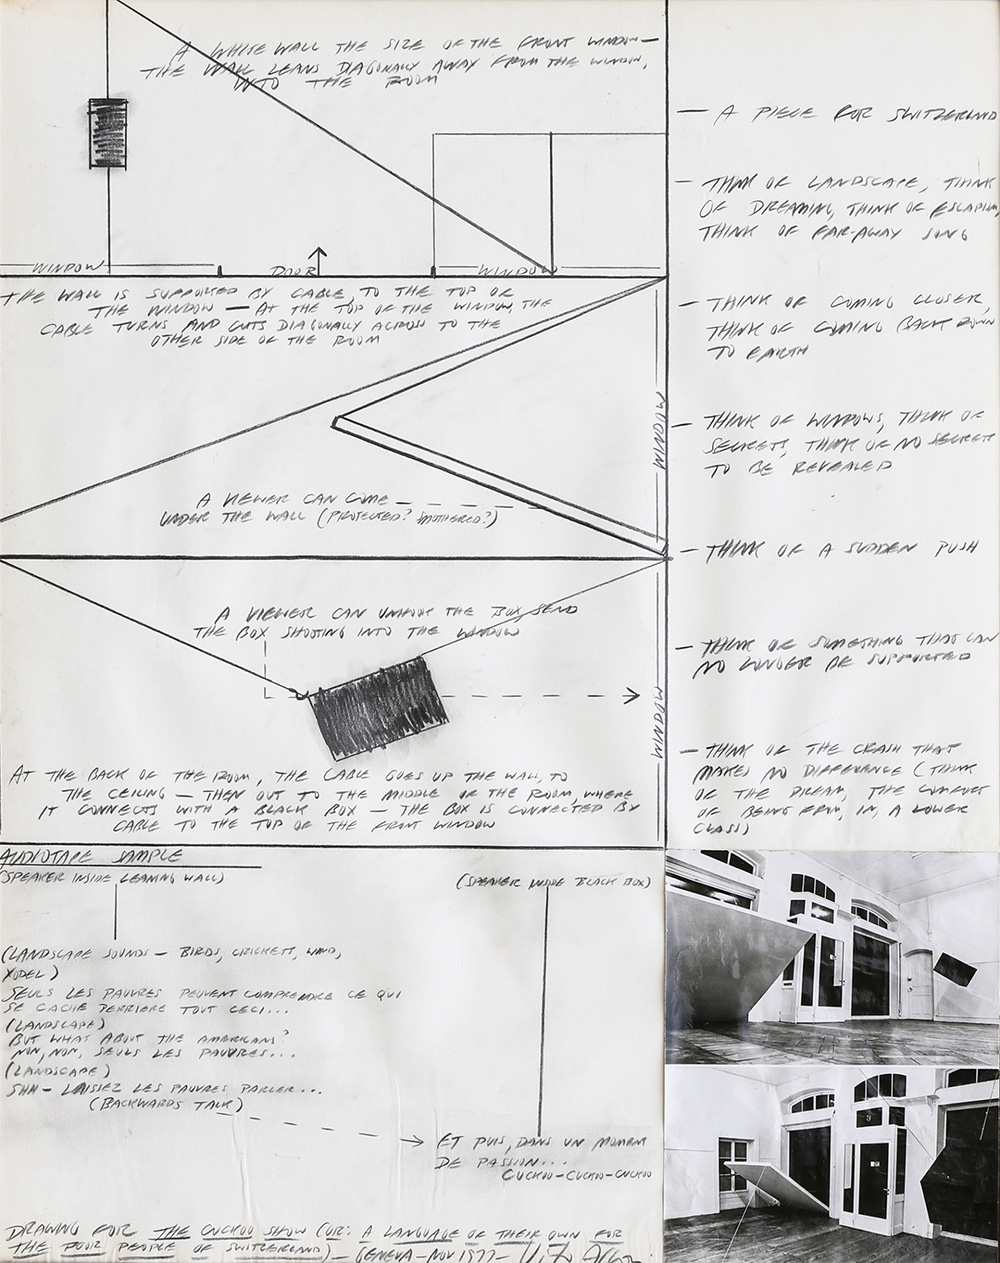 A WHITE WALL THE SIZE OF THE FRONT WINDOW—
THE WALL LEANS DIAGONALLY AWAY FROM THE WINDOW,
INTO THE ROOM
WINDOW
DOOR
WINDOW
THE WALL IS SUPPORTED BY CABLE TO THE TOP OF
THE WINDOW — AT THE TOP OF THE WINDOW, THE
CABLE TURNS AND CUTS DIAGONALLY ACROSS TO THE
OTHER SIDE OF THE ROOM
WINDOW
A VIEWER CAN COME
UNDER THE WALL (PROTECTED? SMOTHERED?)
A VIEWER CAN UNHOOK THE BOX, SEND
THE BOX SHOOTING INTO THE WINDOW
WINDOW
AT THE BACK OF THE ROOM, THE CABLE GOES UP THE WALL, TO
THE CEILING — THEN OUT TO THE MIDDLE OF THE ROOM, WHERE
IT CONNECTS WITH A BLACK BOX — THE BOX IS CONNECTED BY
CABLE TO THE TOP OF THE FRONT WINDOW
— A PIECE FOR SWITZERLAND
— THINK OF LANDSCAPE, THINK
OF DREAMING, THINK OF ESCAPISM,
THINK OF FAR-AWAY SONG
— THINK OF COMING CLOSER,
THINK OF COMING BACK DOWN
TO EARTH
— THINK OF WINDOWS, THINK OF
SECRETS, THINK OF NO SECRETS
TO BE REVEALED
— THINK OF A SUDDEN PUSH
— THINK OF SOMETHING THAT CAN
NO LONGER BE SUPPORTED
— THINK OF THE CRASH THAT
MAKES NO DIFFERENCE (THINK
OF THE DREAM, THE COMFORT
OF BEING FROM, IN, A LOWER
CLASS)
AUDIOTAPE SAMPLE
(SPEAKER INSIDE LEANING WALL)
(SPEAKER INSIDE BLACK BOX)
(LANDSCAPE SOUNDS — BIRDS, CRICKETS, WIND,
YODEL)
SEULS LES PAUVRES PEUVENT COMPRENDRE CE QUI
SE CACHE DERRIERE TOUT CECI...
(LANDSCAPE)
BUT WHAT ABOUT THE AMERICANS?
NON, NON, SEULS LES PAUVRES...
(LANDSCAPE)
SHH — LAISSEZ LES PAUVRES PARLER...
(BACKWARDS TALK)
ET PUIS, DANS UN MOMENT
DE PASSION...
CUCKOO-CUCKOO-CUCKOO
DRAWING FOR THE CUCKOO SHOW (OR: A LANGUAGE OF THEIR OWN FOR
THE POOR PEOPLE OF SWITZERLAND) — GENEVA - NOV 1977 -